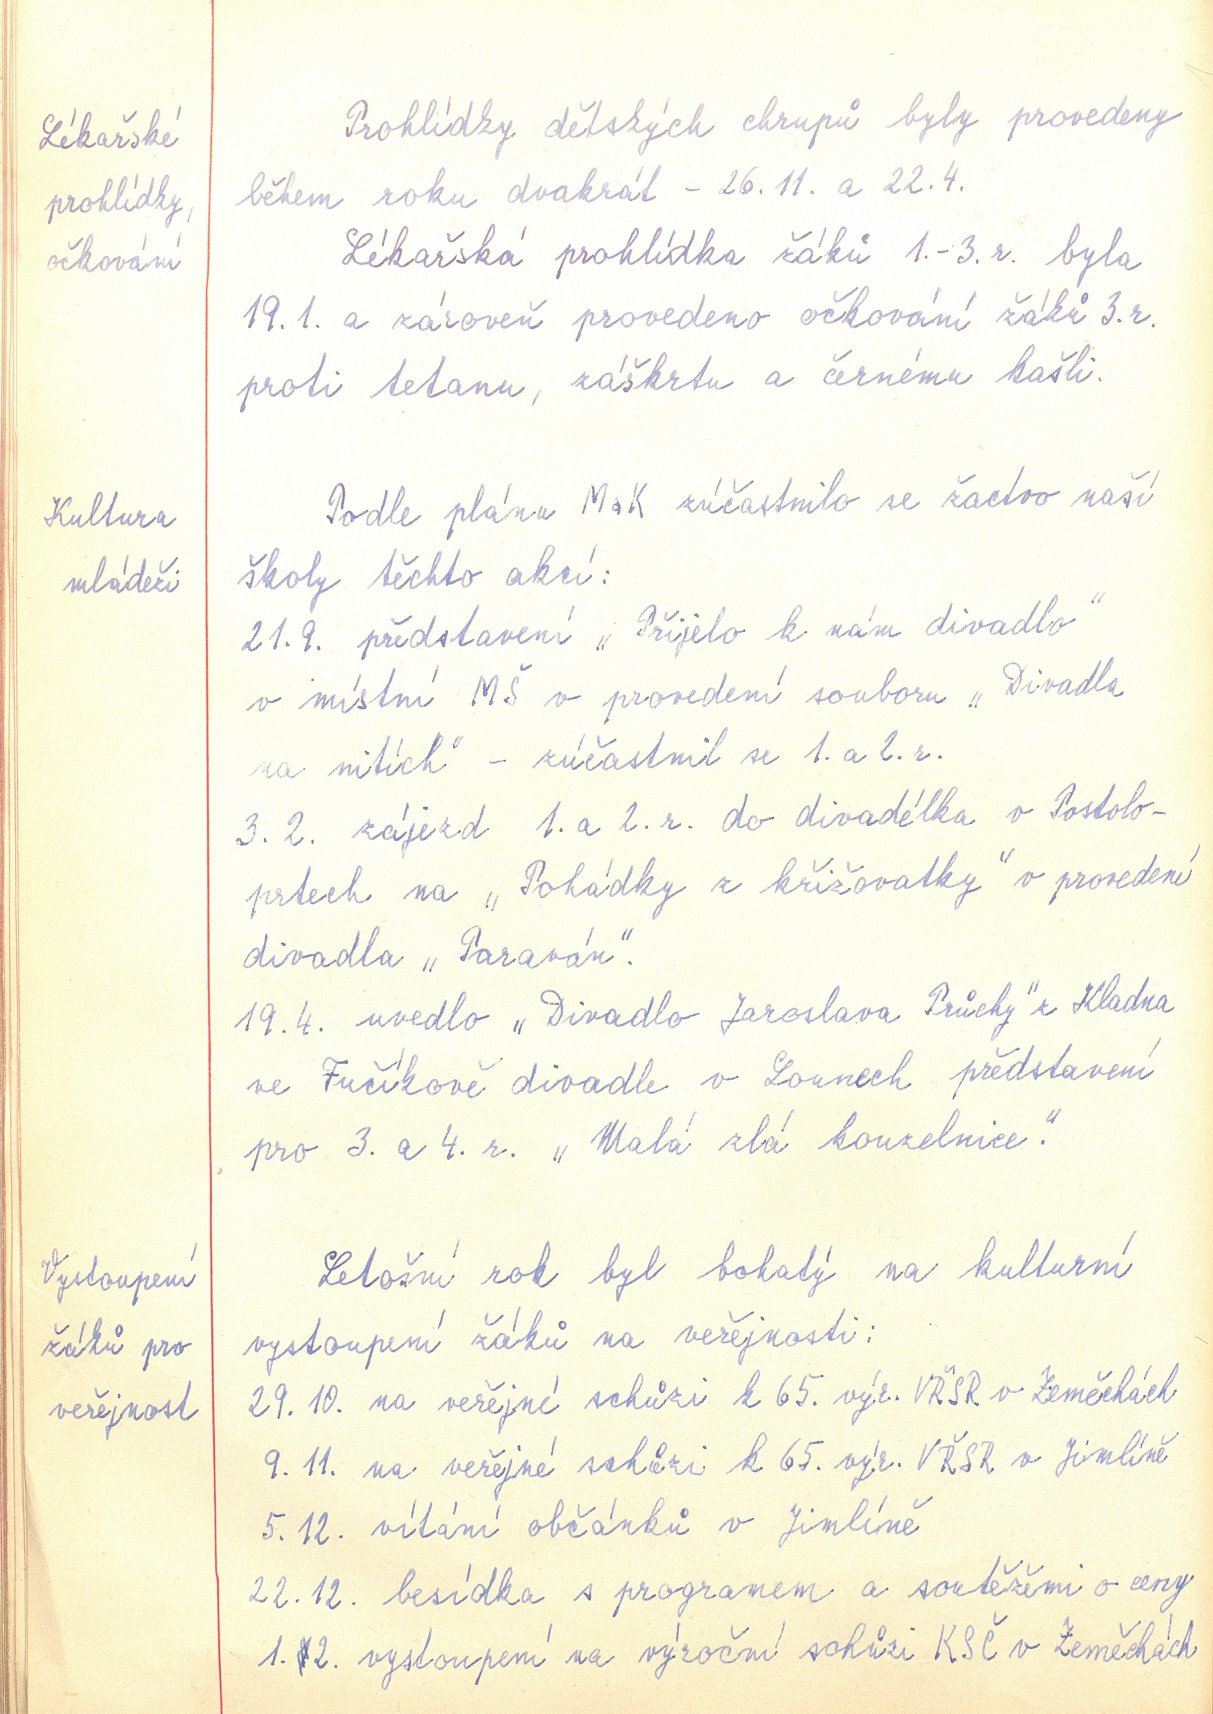 Lékařské
prohlídky,
očkování
Prohlídky dětských chrupů byly provedeny
během roku dvakrát - 26.11. a 22.4.
Lékařská prohlídka žáků 1.-3. r. byla
19.1. a zároveň provedeno očkování žáků 3. r.
proti tetanu, záškrtu a černému kašli.
Kultura
mládeži
Podle plánu MaK zúčastnilo se žactvo naší
školy těchto akcí:
21.9. představení „Přijelo k nám divadlo"
v místní MŠ v provedení souboru „Divadla
na nitích" - zúčastnil se 1. a 2. r.
3. 2. zájezd 1. a 2. r. do divadélka v Postolo-
prtech na „Pohádky z křižovatky" v provedení
divadla „Paraván".
19.4. uvedlo „Divadlo Jaroslava Průchy" z Kladna
ve Fučíkově divadle v Lounech představení
pro 3. a 4. r. „Malá zlá kouzelnice."
Vystoupení
žáků pro
veřejnost
Letošní rok byl bohatý na kulturní
vystoupení žáků na veřejnosti:
29. 10. na veřejné schůzi k 65. výr. VŘSR v Zeměchách
9. 11. na veřejné schůzi k 65. výr. VŘSR v Jimlíně
5. 12. vítání občánků v Jimlíně
22. 12. besídka s programem a soutěžemi o ceny
1. 2. vystoupení na výroční schůzi KSČ v Zeměchách